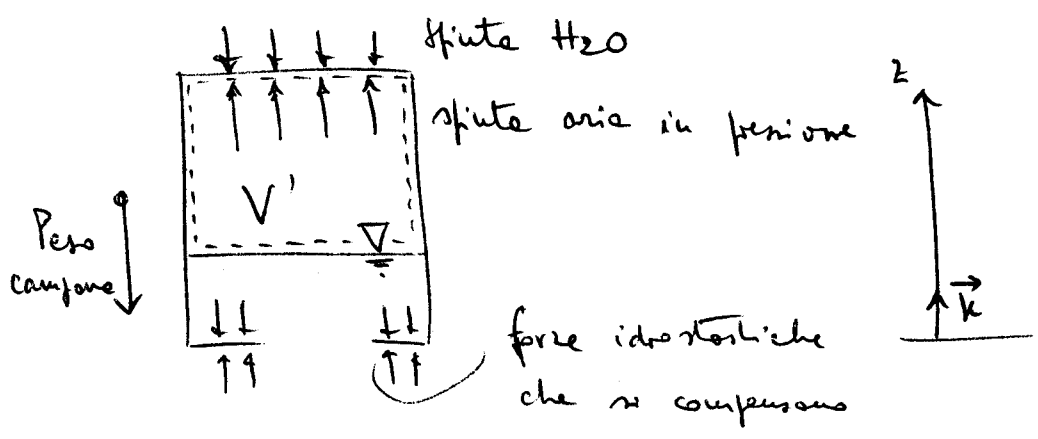 Spinta H2O
z
spinta aria in pressione
V'
Peso
campana
k
forze idrostatiche
che si compensano